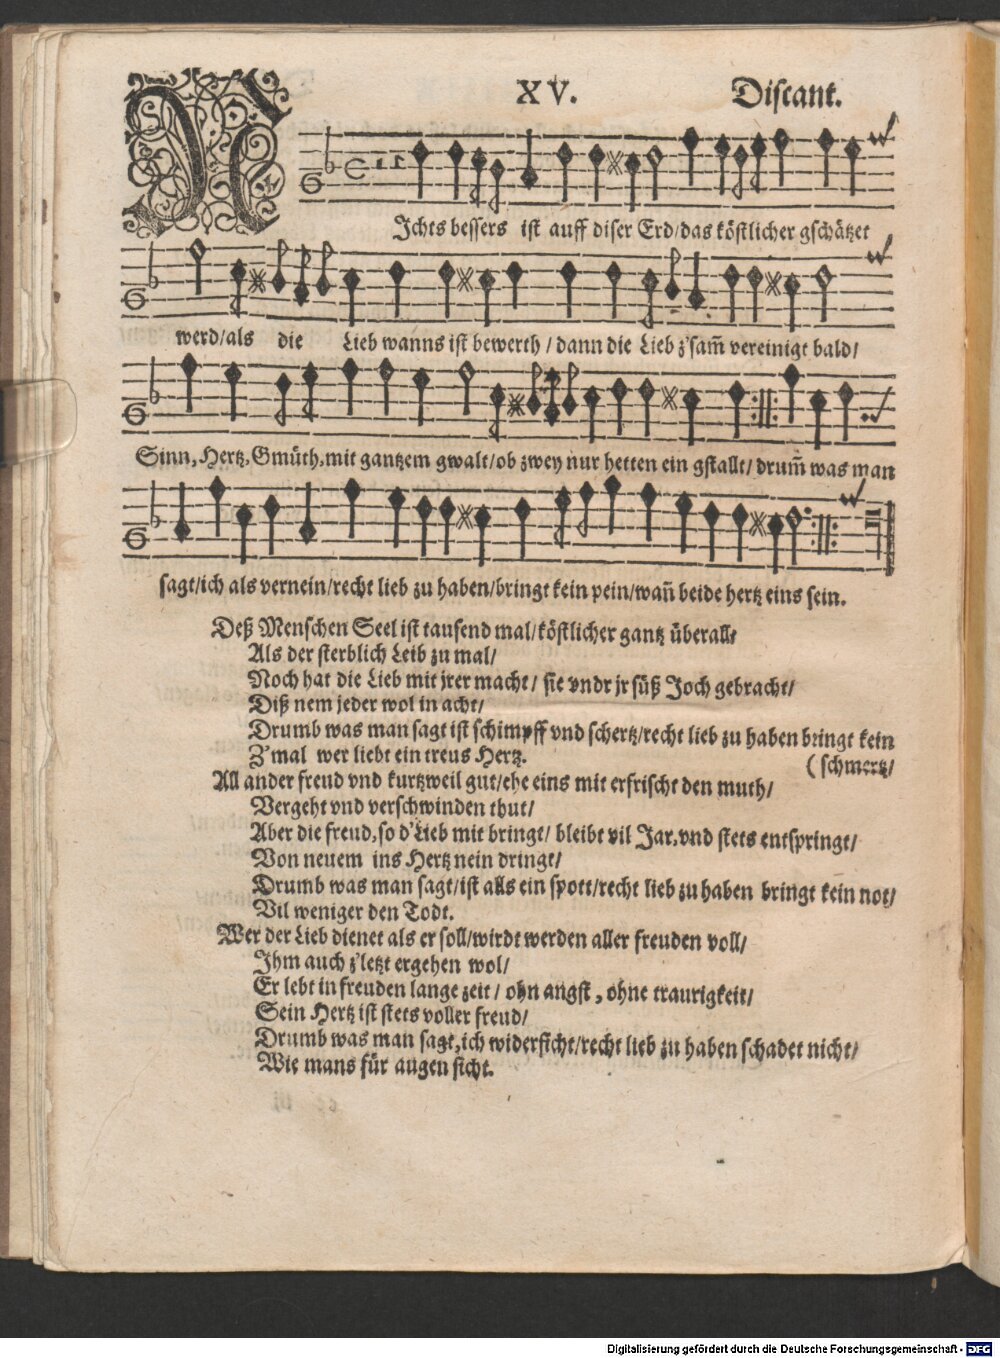 XV. Discant.
NIchts bessers ist auff diser Erd/das köstlicher gschätzet
werd/als die Lieb wanns ist bewerth/dann die Lieb z'sam̃ vereinigt bald/
Sinn, Hertz, Gmüth, mit gantzem gwalt/ob zwey nur hetten ein gstallt/drum̃ was man
sagt/ich als vernein/recht lieb zu haben/bringt kein pein/wañ beide hertz eins sein.
Deß Menschen Seel ist tausend mal/köstlicher gantz überall/
Als der sterblich Leib zu mal/
Noch hat die Lieb mit jrer macht/sie vndr jr süß Joch gebracht/
Diß nem jeder wol in acht/
Drumb was man sagt ist schimpff vnd schertz/recht lieb zu haben bringt kein
Z'mal wer liebt ein treus Hertz. (schmertz/
All ander freud vnd kurtzweil gut/ehe eins mit erfrischt den muth/
Vergeht vnd verschwinden thut/
Aber die freud, so d'Lieb mit bringt/bleibt vil Jar, vnd stets entspringt/
Von neuem ins Hertz nein dringt/
Drumb was man sagt/ist alls ein spott/recht lieb zu haben bringt kein not/
Vil weniger den Todt.
Wer der Lieb dienet als er soll/wirdt werden aller freuden voll/
Ihm auch z'letzt ergehen wol/
Er lebt in freuden lange zeit/ohn angst, ohne traurigkeit/
Sein Hertz ist stets voller freud/
Drumb was man sagt, ich widerficht/recht lieb zu haben schadet nicht/
Wie mans für augen sicht.
Digitalisierung gefördert durch die Deutsche Forschungsgemeinschaft - DFG